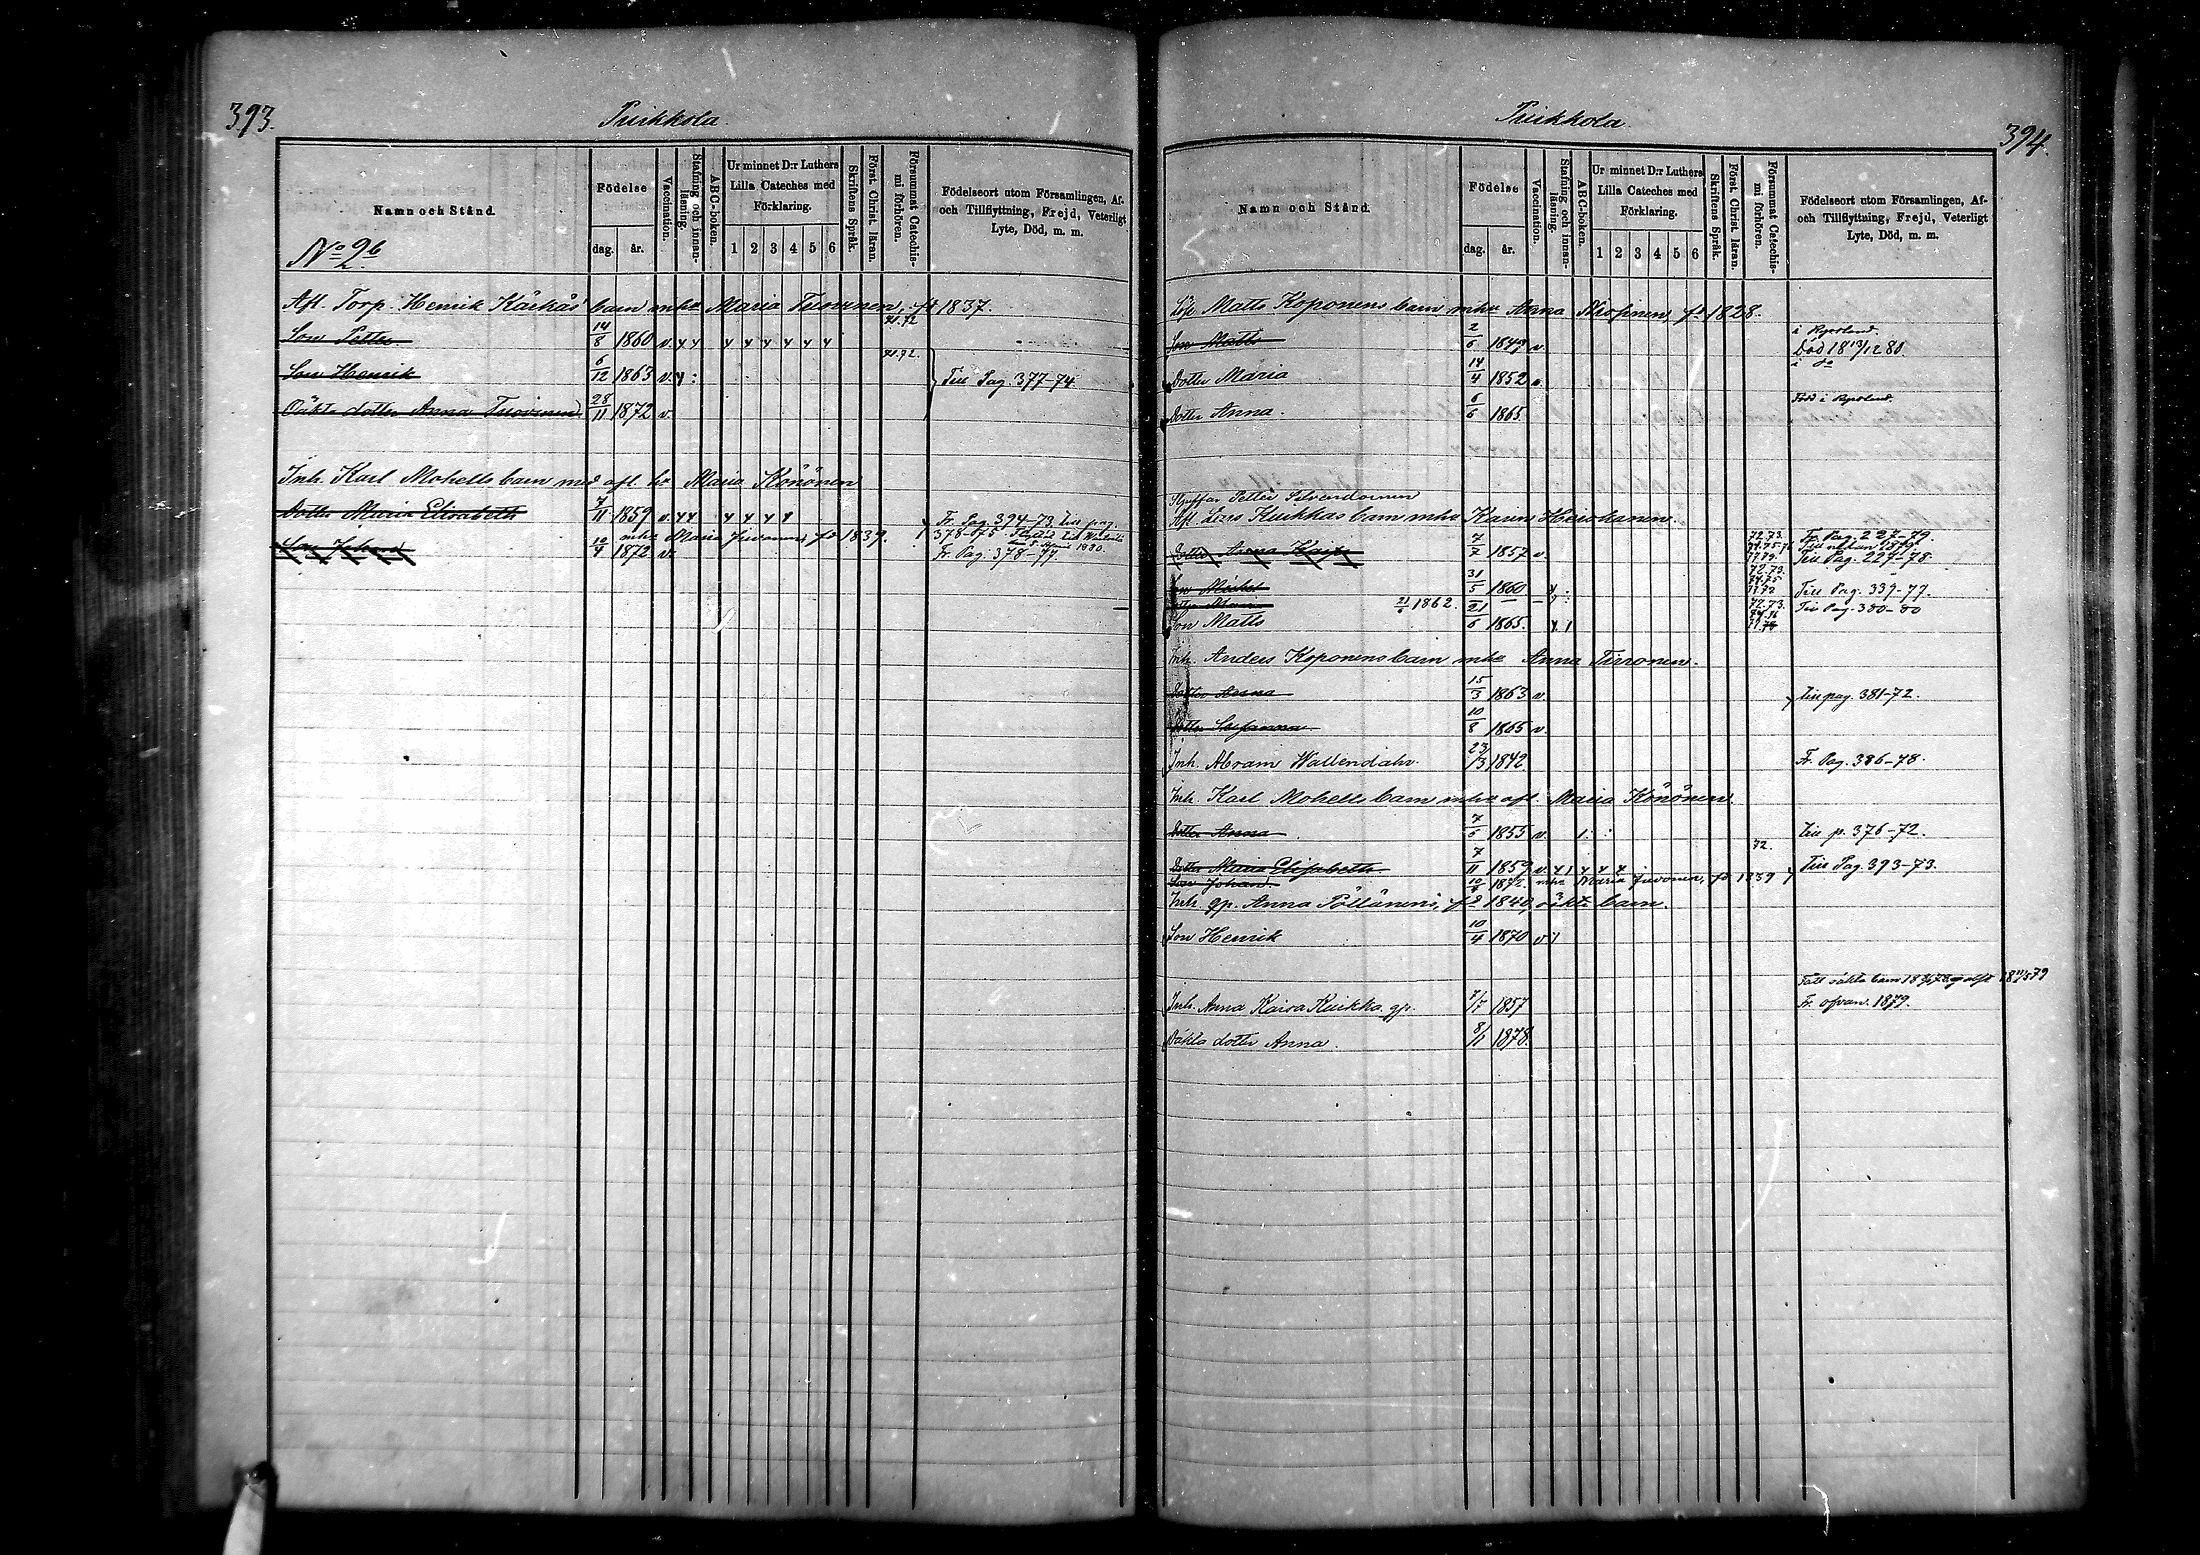 393.
Puikkola.
Namn och Stånd.
Födelse
dag. år.
Vaccination.
Stafning och innanläsning.
ABC-boken.
Ur minnet D:r Luthers
Lilla Cateches med
Förklaring.
1 2 3 4 5 6
Skriftens Språk.
Först. Christ. läran.
Försummat Catechismi förhören.
Födelseort utom Församlingen, Af-
och Tillflyttning, Frejd, Veterligt
Lyte, Död, m. m.
No 2
Afl. Torp. Henrik Kärkäs barn mha Maria Tuovinen, fd 1837.
Son Petter 14/8 1860 v. 71.72
Son Henrik 6/12 1863 v. 71.72. Till Pag. 377-74
Oäkta dotter Anna Tuovinen 28/11 1872 v.
Inh. Karl Mohells barn med afl. ha Maria Könönen
Dotter Maria Elisabeth 7/11 1859 v. Fr. Pag. 394-73 Till pag.
mha Maria Juvonen, fd 1839. 378-75
Son Johan 10/4 1872 v. Fr. Pag. 378-77.
394.
Puikkola.
Namn och Stånd.
Födelse
dag. år.
Vaccination.
Stafning och innanläsning.
ABC-boken.
Ur minnet D:r Luthers
Lilla Cateches med
Förklaring.
1 2 3 4 5 6
Skriftens Språk.
Först. Christ. läran.
Försummat Catechismi förhören.
Födelseort utom Församlingen, Af-
och Tillflyttning, Frejd, Veterligt
Lyte, Död, m. m.
Matts Koponens barn mha Anna fd 1828.
Son Matts 2/6 1847 v. Död 18 13/12 80
Dotter Maria 14/4 1852
Dotter Anna. 6/6 1865. Född i
Petter
Afl. Kuikkas barn mha Karin Heiskanen.
Dotter Anna Kaisa 7/7 1857 v. 72.73. Fr. Pag. 227-79.
Till Pag. 227-78.
Son Michel 31/5 1860 Till Pag. 339-77.
21/6 1862. 72.73. Till Pag. 380-80
Son Matts 21/6 1865.
Inh. Anders Koponens barn mha Anna Tirronen.
Dotter Anna 15/3 1863 v. Till pag. 381-72.
Dotter Susanna 10/8 1865 v.
Inh. Abram Wallendahr 23/3 1842 Fr. Pag. 386-78.
Inh. Karl Mohells barn mha afl. Maria Könönen.
Dotter Anna 7/6 1855 v. Till p. 376-72.
Dotter Maria Elisabeth 7/11 1859 v. 72. Till Pag. 393-73.
Son Johan 10/4 1872. mha Maria Juvonen, fd 1839
Inh. qp. Anna Pöllänens, fd 1840, oäkta barn.
Son Henrik 10/4 1870 v.
Inh. Anna Kaisa Kuikka qp. 7/7 1857 Fr. ofvan. 1879.
Oäkta dotter Anna. 8/11 1878.